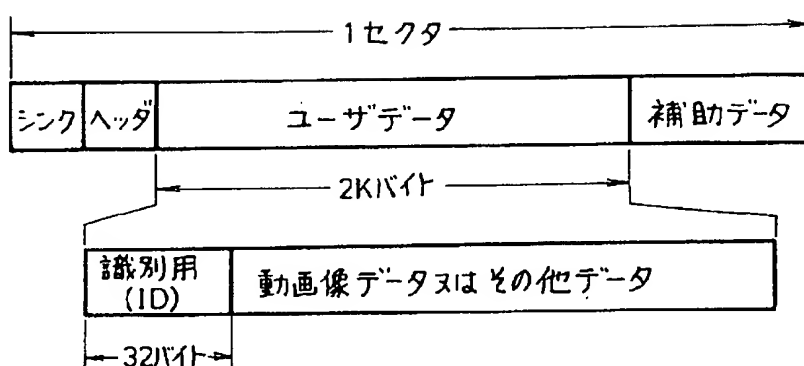 1セクタ
シンク ヘッダ ユーザデータ 補助データ
2Kバイト
識別用
(ID)
動画像データ又はその他データ
32バイト